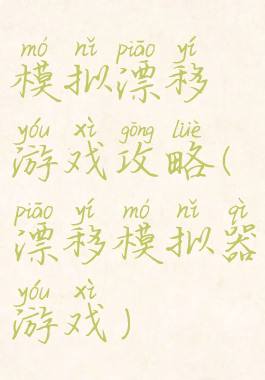 mó nǐ piāo yí
模拟漂移
yóu xì gōng lüè
游戏攻略(
piāo yí mó nǐ qì
漂移模拟器
yóu xì
游戏)